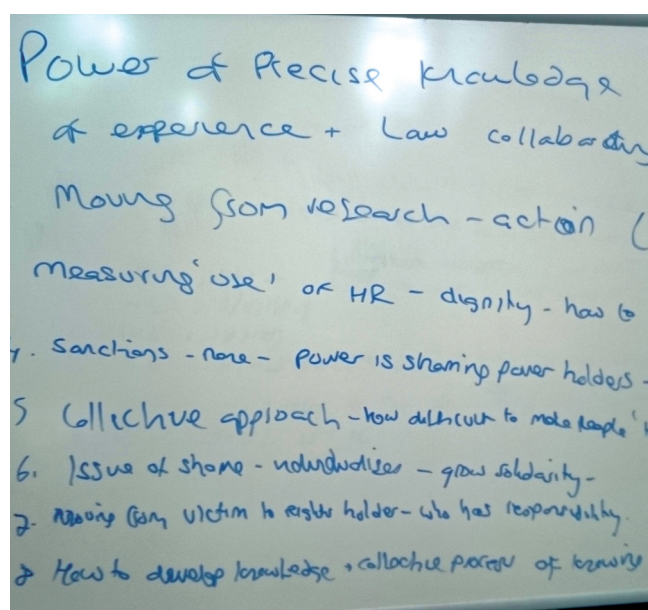 Power of Precise knowledge
of experience + Law collaborating
Moving from research - action (
measuring 'use' of HR - dignity - how to
4. Sanctions - none - power is shaming power holders -
5 Collective approach - how difficult to make people '
6. Issue of shame - individualises - grow solidarity -
7. Moving from victim to rights holder - who has responsibility.
8 How to develop knowledge + collective process of knowing